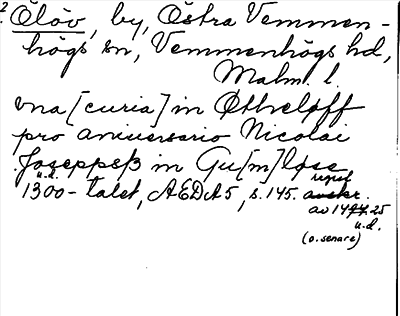 2
Ölöv, by, Östra Vemmen-
högs sn, Vemmenhögs hd,
Malm. l.
vna [curia] in Øtheløff
pro aniuersario Nicolai
Joseppsß in Gu[m]løse
u.d.
1300-talet, ÆDA 5, s. 145. avskr.
av 1477. 25
u.d.
(o. senare)